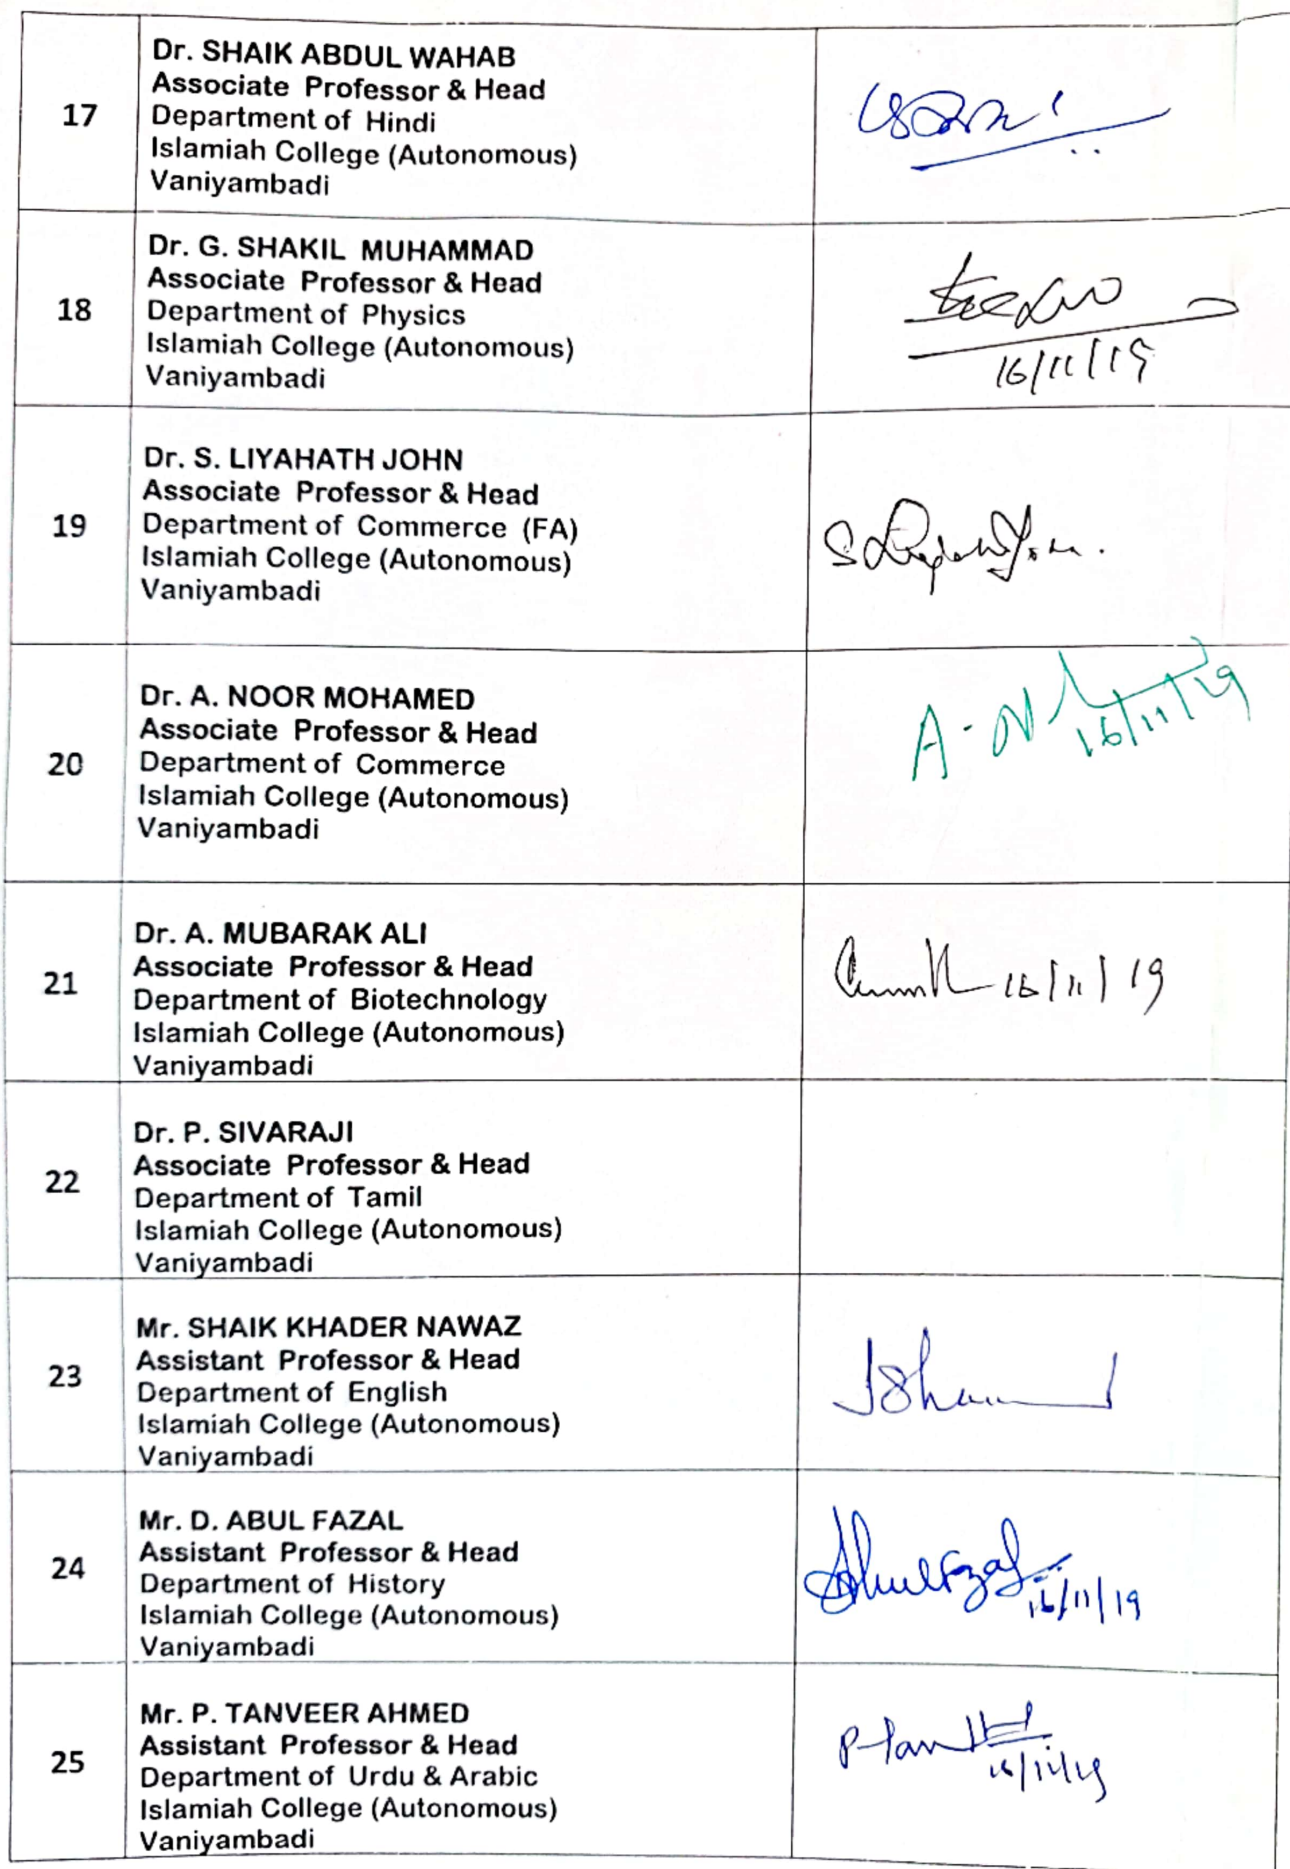 17
Dr. SHAIK ABDUL WAHAB
Associate Professor & Head
Department of Hindi
Islamiah College (Autonomous)
Vaniyambadi
18
Dr. G. SHAKIL MUHAMMAD
Associate Professor & Head
Department of Physics
Islamiah College (Autonomous)
Vaniyambadi
16/11/19
19
Dr. S. LIYAHATH JOHN
Associate Professor & Head
Department of Commerce (FA)
Islamiah College (Autonomous)
Vaniyambadi
20
Dr. A. NOOR MOHAMED
Associate Professor & Head
Department of Commerce
Islamiah College (Autonomous)
Vaniyambadi
16/11/19
21
Dr. A. MUBARAK ALI
Associate Professor & Head
Department of Biotechnology
Islamiah College (Autonomous)
Vaniyambadi
16/11/19
22
Dr. P. SIVARAJI
Associate Professor & Head
Department of Tamil
Islamiah College (Autonomous)
Vaniyambadi
23
Mr. SHAIK KHADER NAWAZ
Assistant Professor & Head
Department of English
Islamiah College (Autonomous)
Vaniyambadi
24
Mr. D. ABUL FAZAL
Assistant Professor & Head
Department of History
Islamiah College (Autonomous)
Vaniyambadi
AbulFazal
16/11/19
25
Mr. P. TANVEER AHMED
Assistant Professor & Head
Department of Urdu & Arabic
Islamiah College (Autonomous)
Vaniyambadi
16/11/19